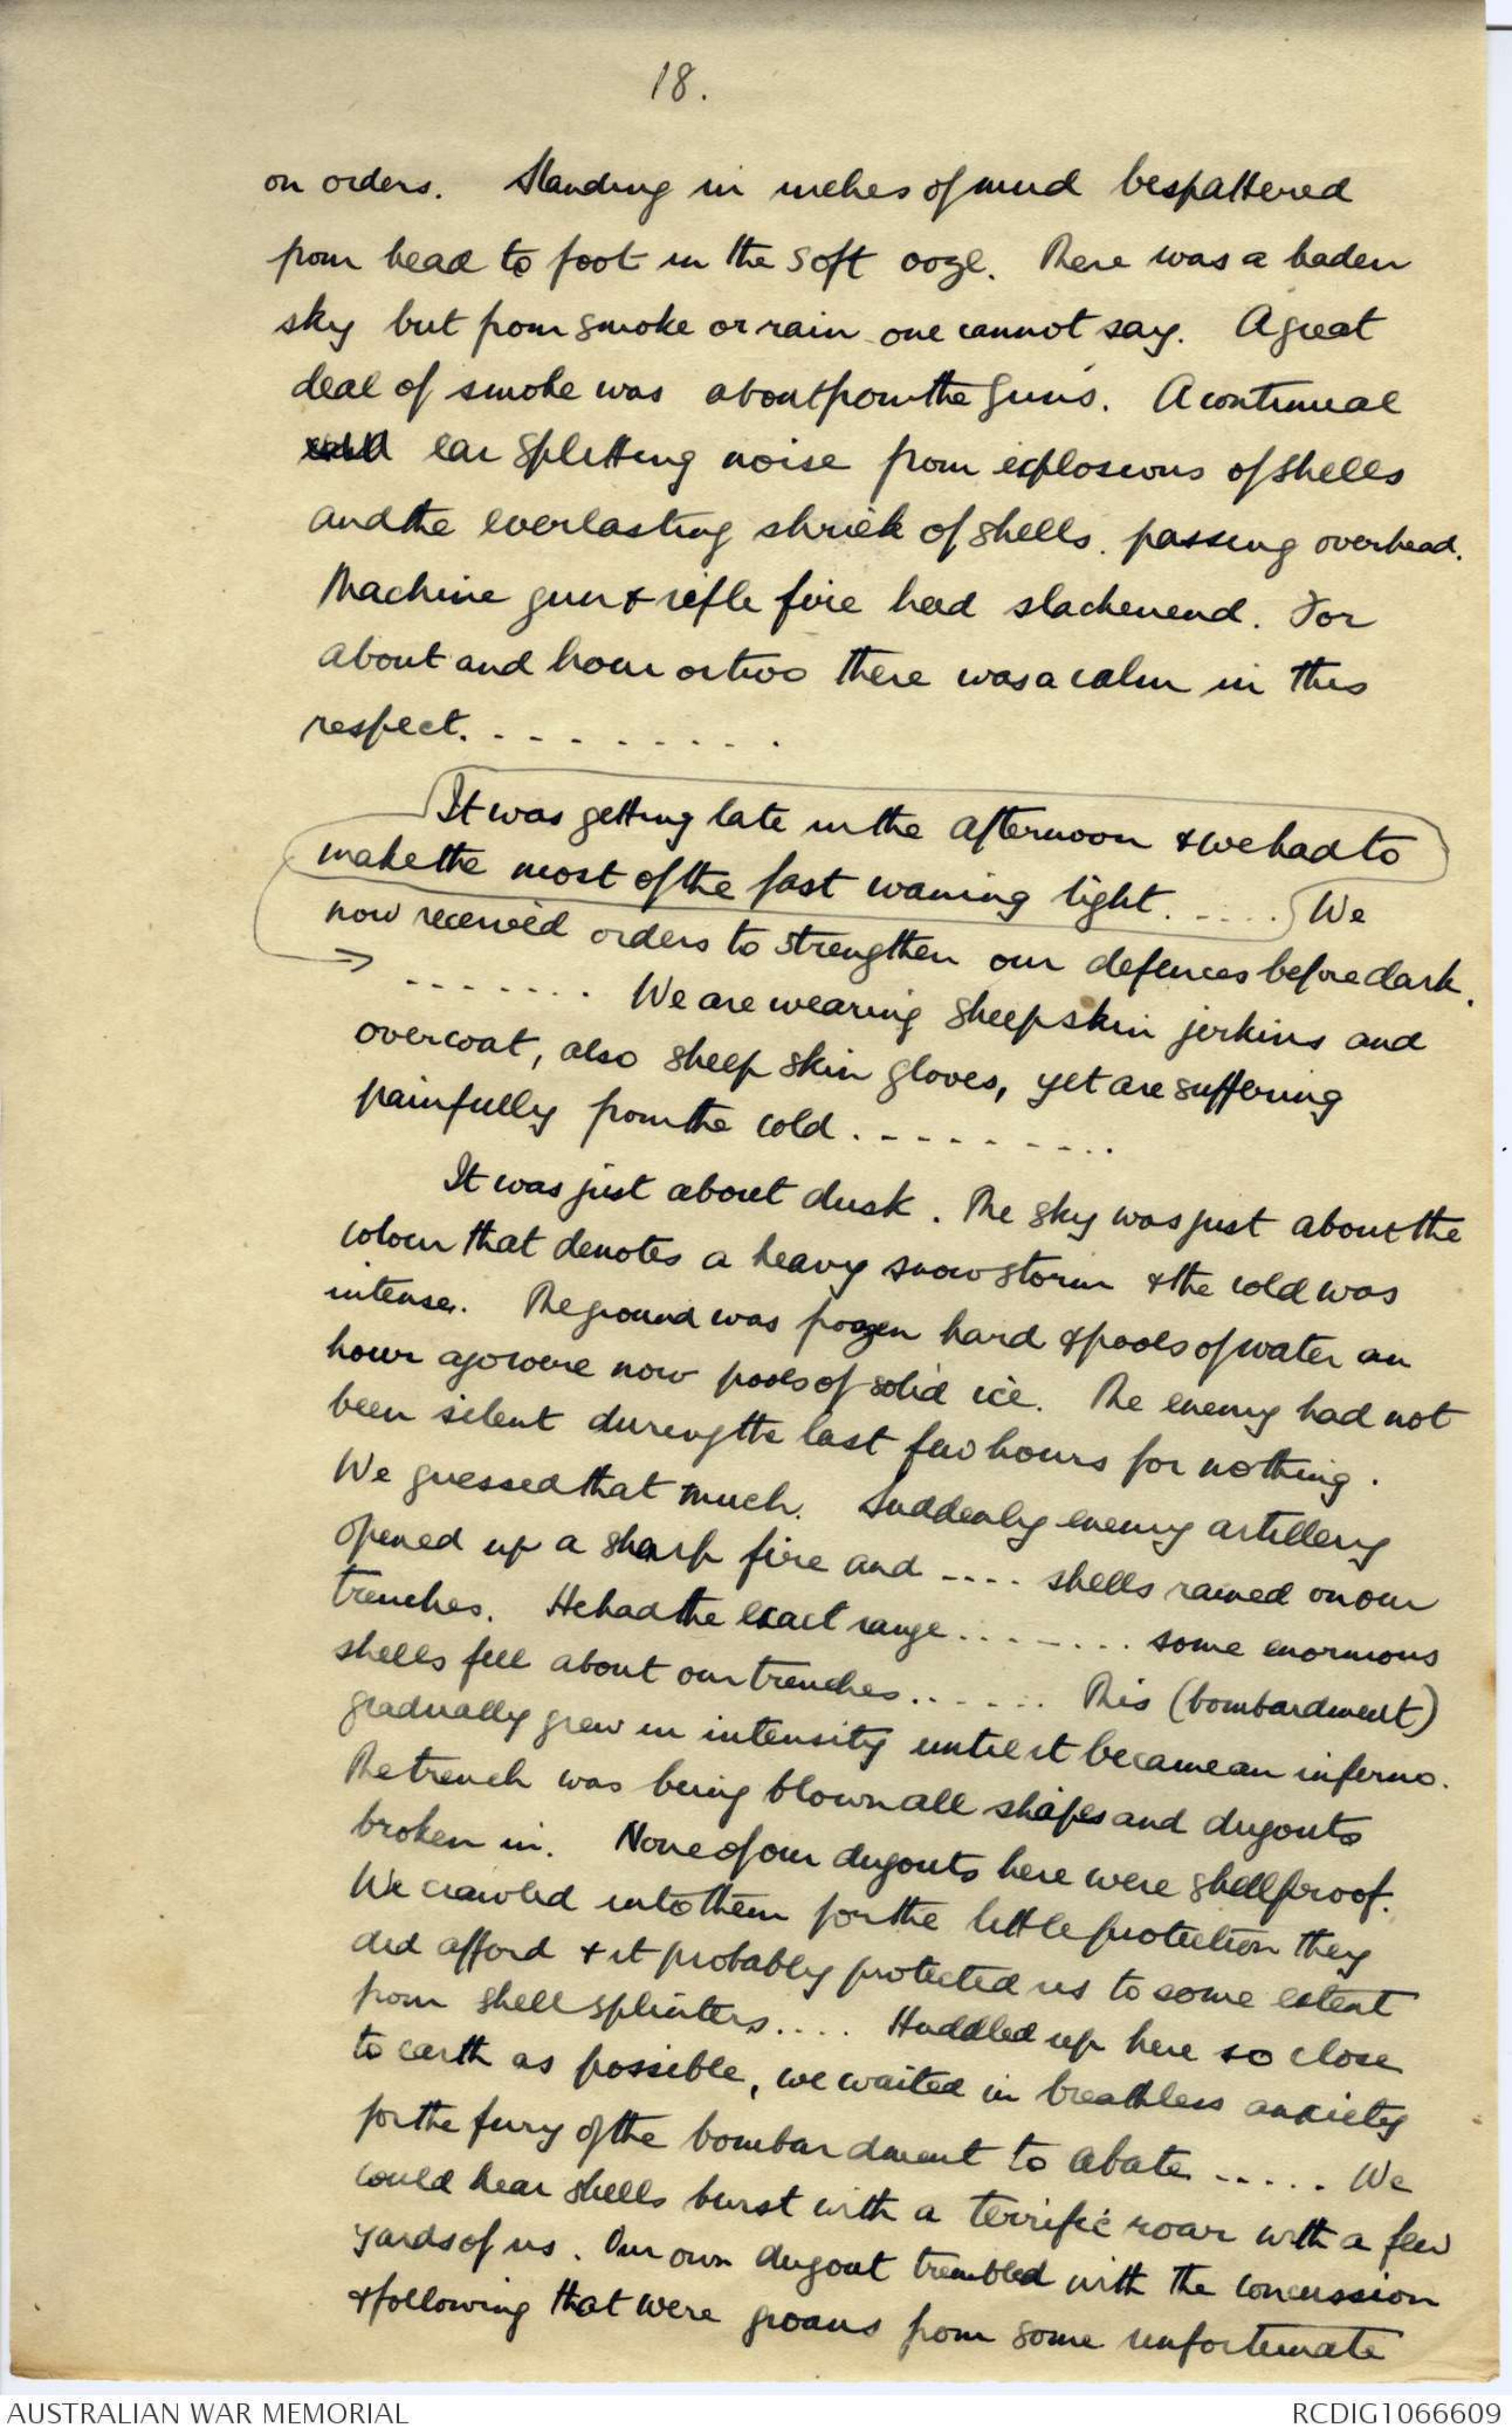 18.
on orders. Standing in inches of mud bespattered
from head to foot in the soft ooze. There was a laden
sky but from smoke or rain one cannot say. A great
deal of smoke was about from the guns. A continual
ear splitting noise from explosions of shells
and the everlasting shriek of shells. passing overhead.
Machine gun & rifle fire had slackenend. For
about and hour or two there was a calm in this
respect. . - - - - - - - - .
It was getting late in the afternoon & we had to
make the most of the fast waning light. . - - . . We
now received orders to strengthen our defences before dark.
→ - - - - - - . . We are wearing sheepskin jerkins and
overcoat, also sheep skin gloves, yet are suffering
painfully from the cold . - - - - - - - . .
It was just about dusk. The sky was just about the
colour that denotes a heavy snow storm & the cold was
intense. The ground was frozen hard & pools of water an
hour ago were now pools of solid ice. The enemy had not
been silent during the last few hours for nothing.
We guessed that much. Suddenly enemy artillery
opened up a sharp fire and ---- shells rained on our
trenches. He had the exact range . . - - - . . . some enormous
shells fell about our trenches . . - - - . . This (bombardment)
gradually grew in intensity until it became an inferno.
The trench was being blown all shapes and dugouts
broken in. None of our dugouts here were shellproof.
We crawled into them for the little protection they
did afford & it probably protected us to some extent
from shell splinters . . . . Huddled up here so close
to earth as possible, we waited in breathless anxiety
for the fury of the bombardment to abate. - - . . . We
could hear shells burst with a terrific roar with a few
yards of us. Our own dugout trembled with the concussion
& following that were groans from some unfortunate
AUSTRALIAN WAR MEMORIAL
RCDIG1066609